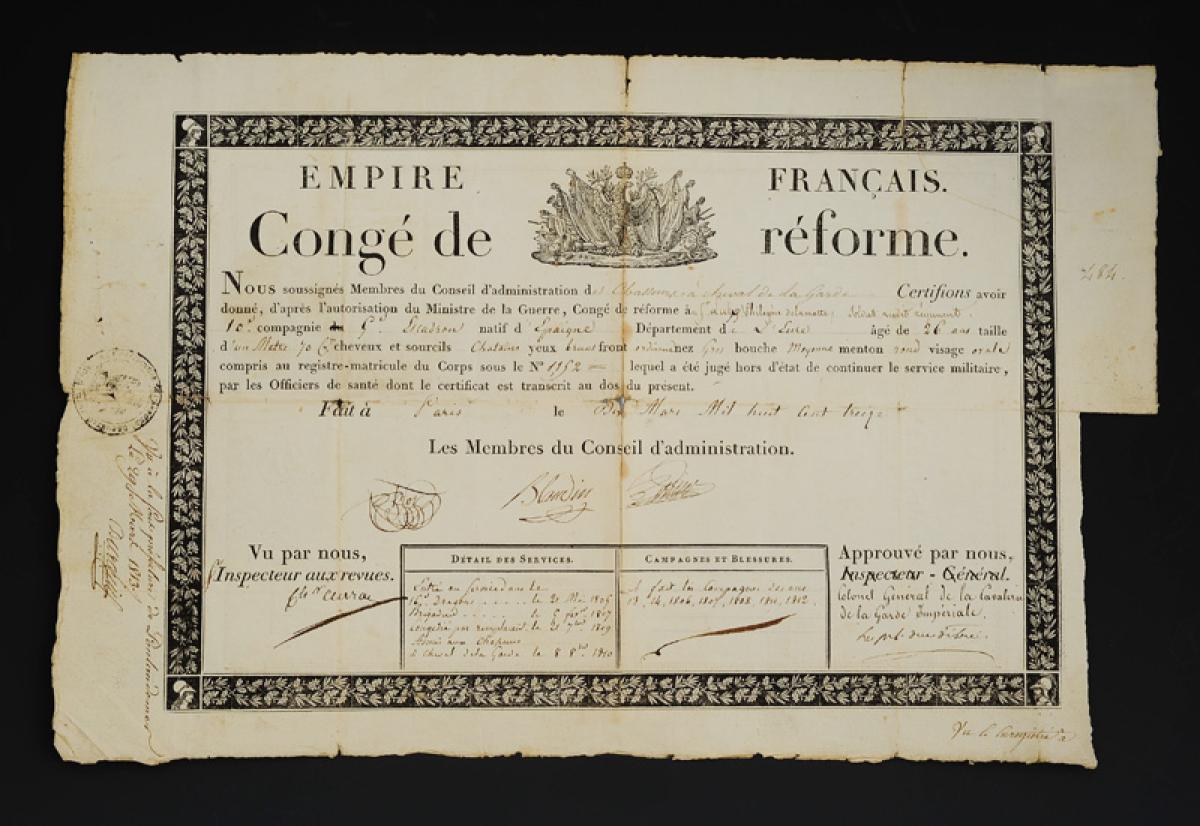 EMPIRE FRANÇAIS.
Congé de réforme.
Nous soussignés Membres du Conseil d'administration des Chasseurs à cheval de la Garde Certifions avoir
donné, d'après l'autorisation du Ministre de la Guerre, Congé de réforme à Philippe
10e compagnie du 5e Escadron natif d'Epaigne Département de L'Eure âgé de 26 ans taille
d'un Mètre 70 Cs cheveux et sourcils Chatains yeux bruns front ordinaire nez Gros bouche Moyenne menton rond visage ovale
compris au registre-matricule du Corps sous le No 1952 lequel a été jugé hors d'état de continuer le service militaire,
par les Officiers de santé dont le certificat est transcrit au dos du présent.
Fait à Paris le Dix Mars Mil huit Cent treize
Les Membres du Conseil d'administration.
Vu par nous,
Inspecteur aux revues.
DÉTAIL DES SERVICES.
Entré au Service dans le
16e Dragons le 20 Mai 1806
Brigadier le 1807
congédié par remplacement le 21 7bre 1809
aux Chasseurs
à Cheval de la Garde le 8 8bre 1810
CAMPAGNES ET BLESSURES.
A fait les Campagnes des ans
13, 14, 1806, 1807, 1808, 1811, 1812.
Approuvé par nous,
Inspecteur-Général.
Colonel Général de la Cavalerie
de la Garde Impériale
484.
Vu à la sous préfecture de Pontaudemer
Le 1813
Vu &